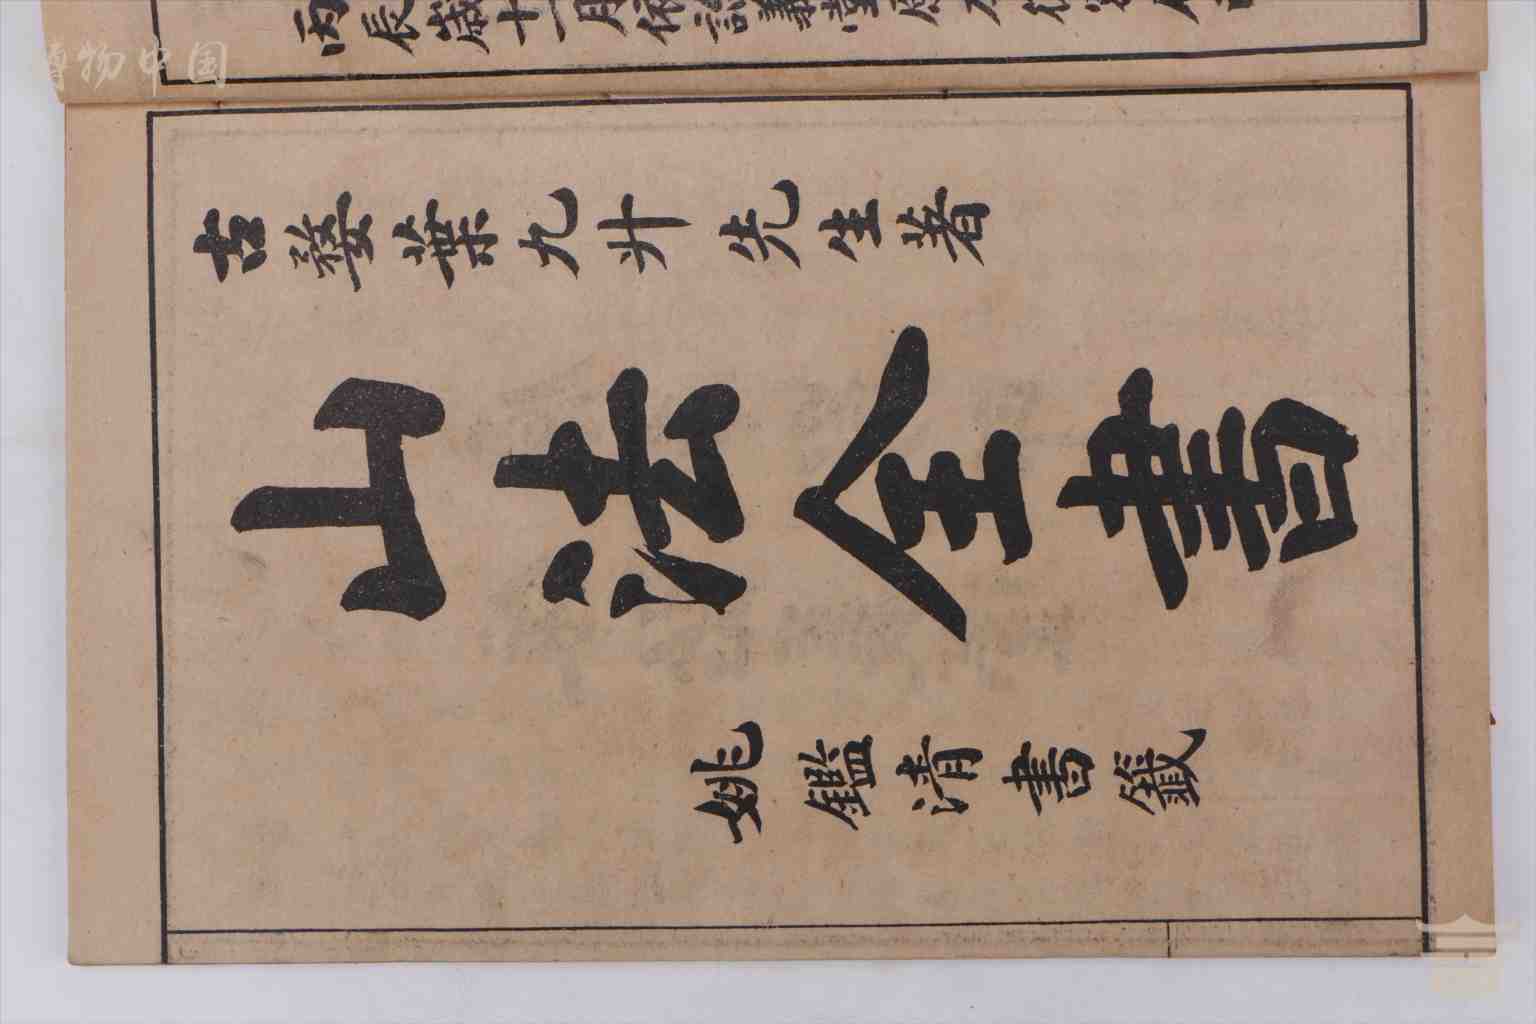 丙辰歲十一月依
古婺葉九升先生著
山法全書
姚鑑清書籤
博物中国